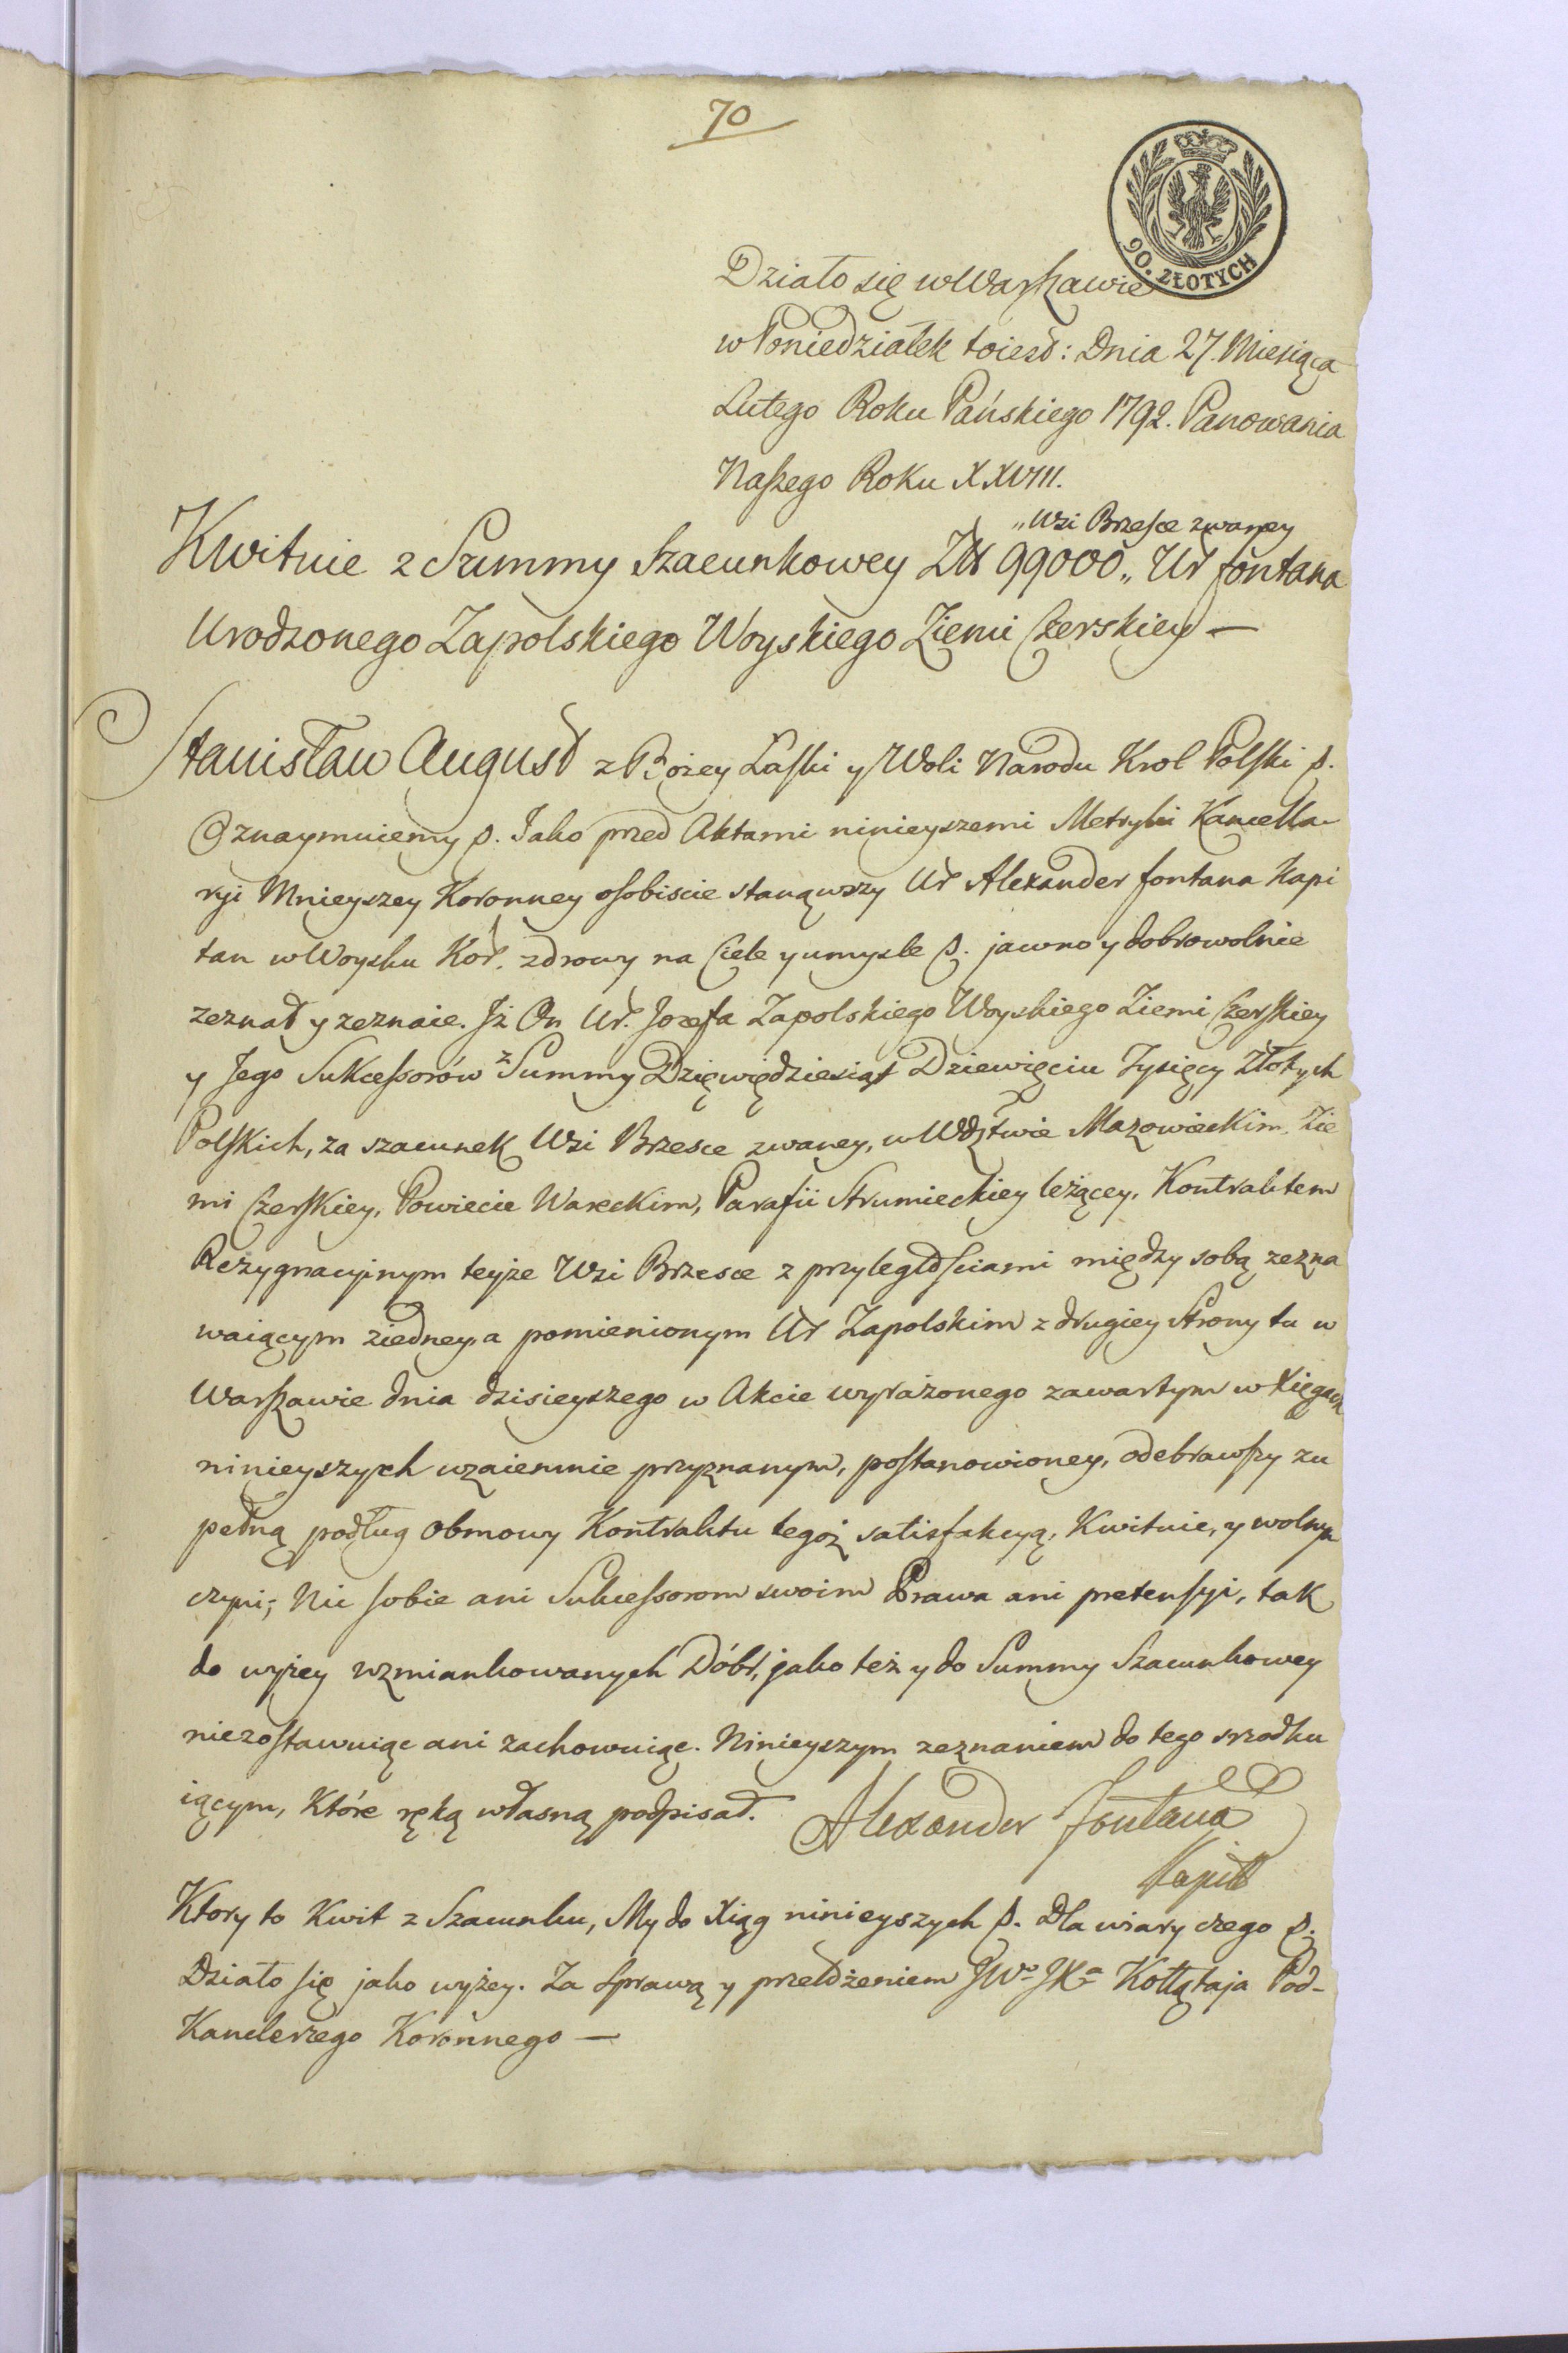 70
90. ZŁOTYCH
Działo się w Warszawie
w Poniedziałek toiest: Dnia 27. Miesiąca
Lutego Roku Pańskiego 1792. Panowania
Naszego Roku XXVIII.
„Wsi Brzesce zwaney
Kwituie z Summy Szacunkowey Złł 99000„ Ur fontana
Urodzonego Zapolskiego Woyskiego Ziemi Czerskiey —
Stanisław August z Bożey Łaski y Woli Narodu Krol Polski p.
Oznaymuiemy p. Jako przed Aktami ninieyszemi Metryki Kancella-
ryi Mnieyszey Koronney osobiscie stanąwszy Ur Alexander fontana Kapi
tan w Woysku Kor. zdrowy na Ciele y umysle p. jawno y dobrowolnie
zeznał y zeznaie. Jż On Ur. Jozefa Zapolskiego Woyskiego Ziemi Czerskiey
y Jego Sukcessorów z Summy Dziewiędziesiąt Dziewięciu Tysięcy Złotych
Polskich, za szacunek Wsi Brzesce zwaney, w Wdztwie Mazowieckim, Zie
mi Czerskiey, Powiecie Wareckim, Parafii Strumieckiey leżącey, Kontraktem
Rezygnacyinym teyże Wsi Brzesce z przyległościami między sobą zezna
waiącym ziedney, a pomienionym Ur Zapolskim z drugiey Strony tu w
Warszawie dnia dzisieyszego w Akcie wyrażonego zawartym w Xięgach
ninieyszych wzaiemnie przyznanym, postanowioney, odebrawszy zu
pełną podług obmowy Kontraktu tegoż satisfakcyą, Kwituie, y wolnym
czyni; Nic sobie ani Sukcessorom swoim Prawa ani pretensyi, tak
do wyżey wzmiankowanych Dóbr, jako też y do Summy Szacunkowey
niezostawuiąc ani zachowuiąc. Ninieyszym zeznaniem do tego srzodku
iącym, Które ręką własną podpisał. Alexander Fontana
Kapit
Ktory to Kwit z Szacunku, My do Xiąg ninieyszych p. Dla wiary czego p.
Działo się jako wyżey. Za Sprawą y przełożeniem JWo JXa Kołłątaja Pod-
Kanclerzego Koronnego —